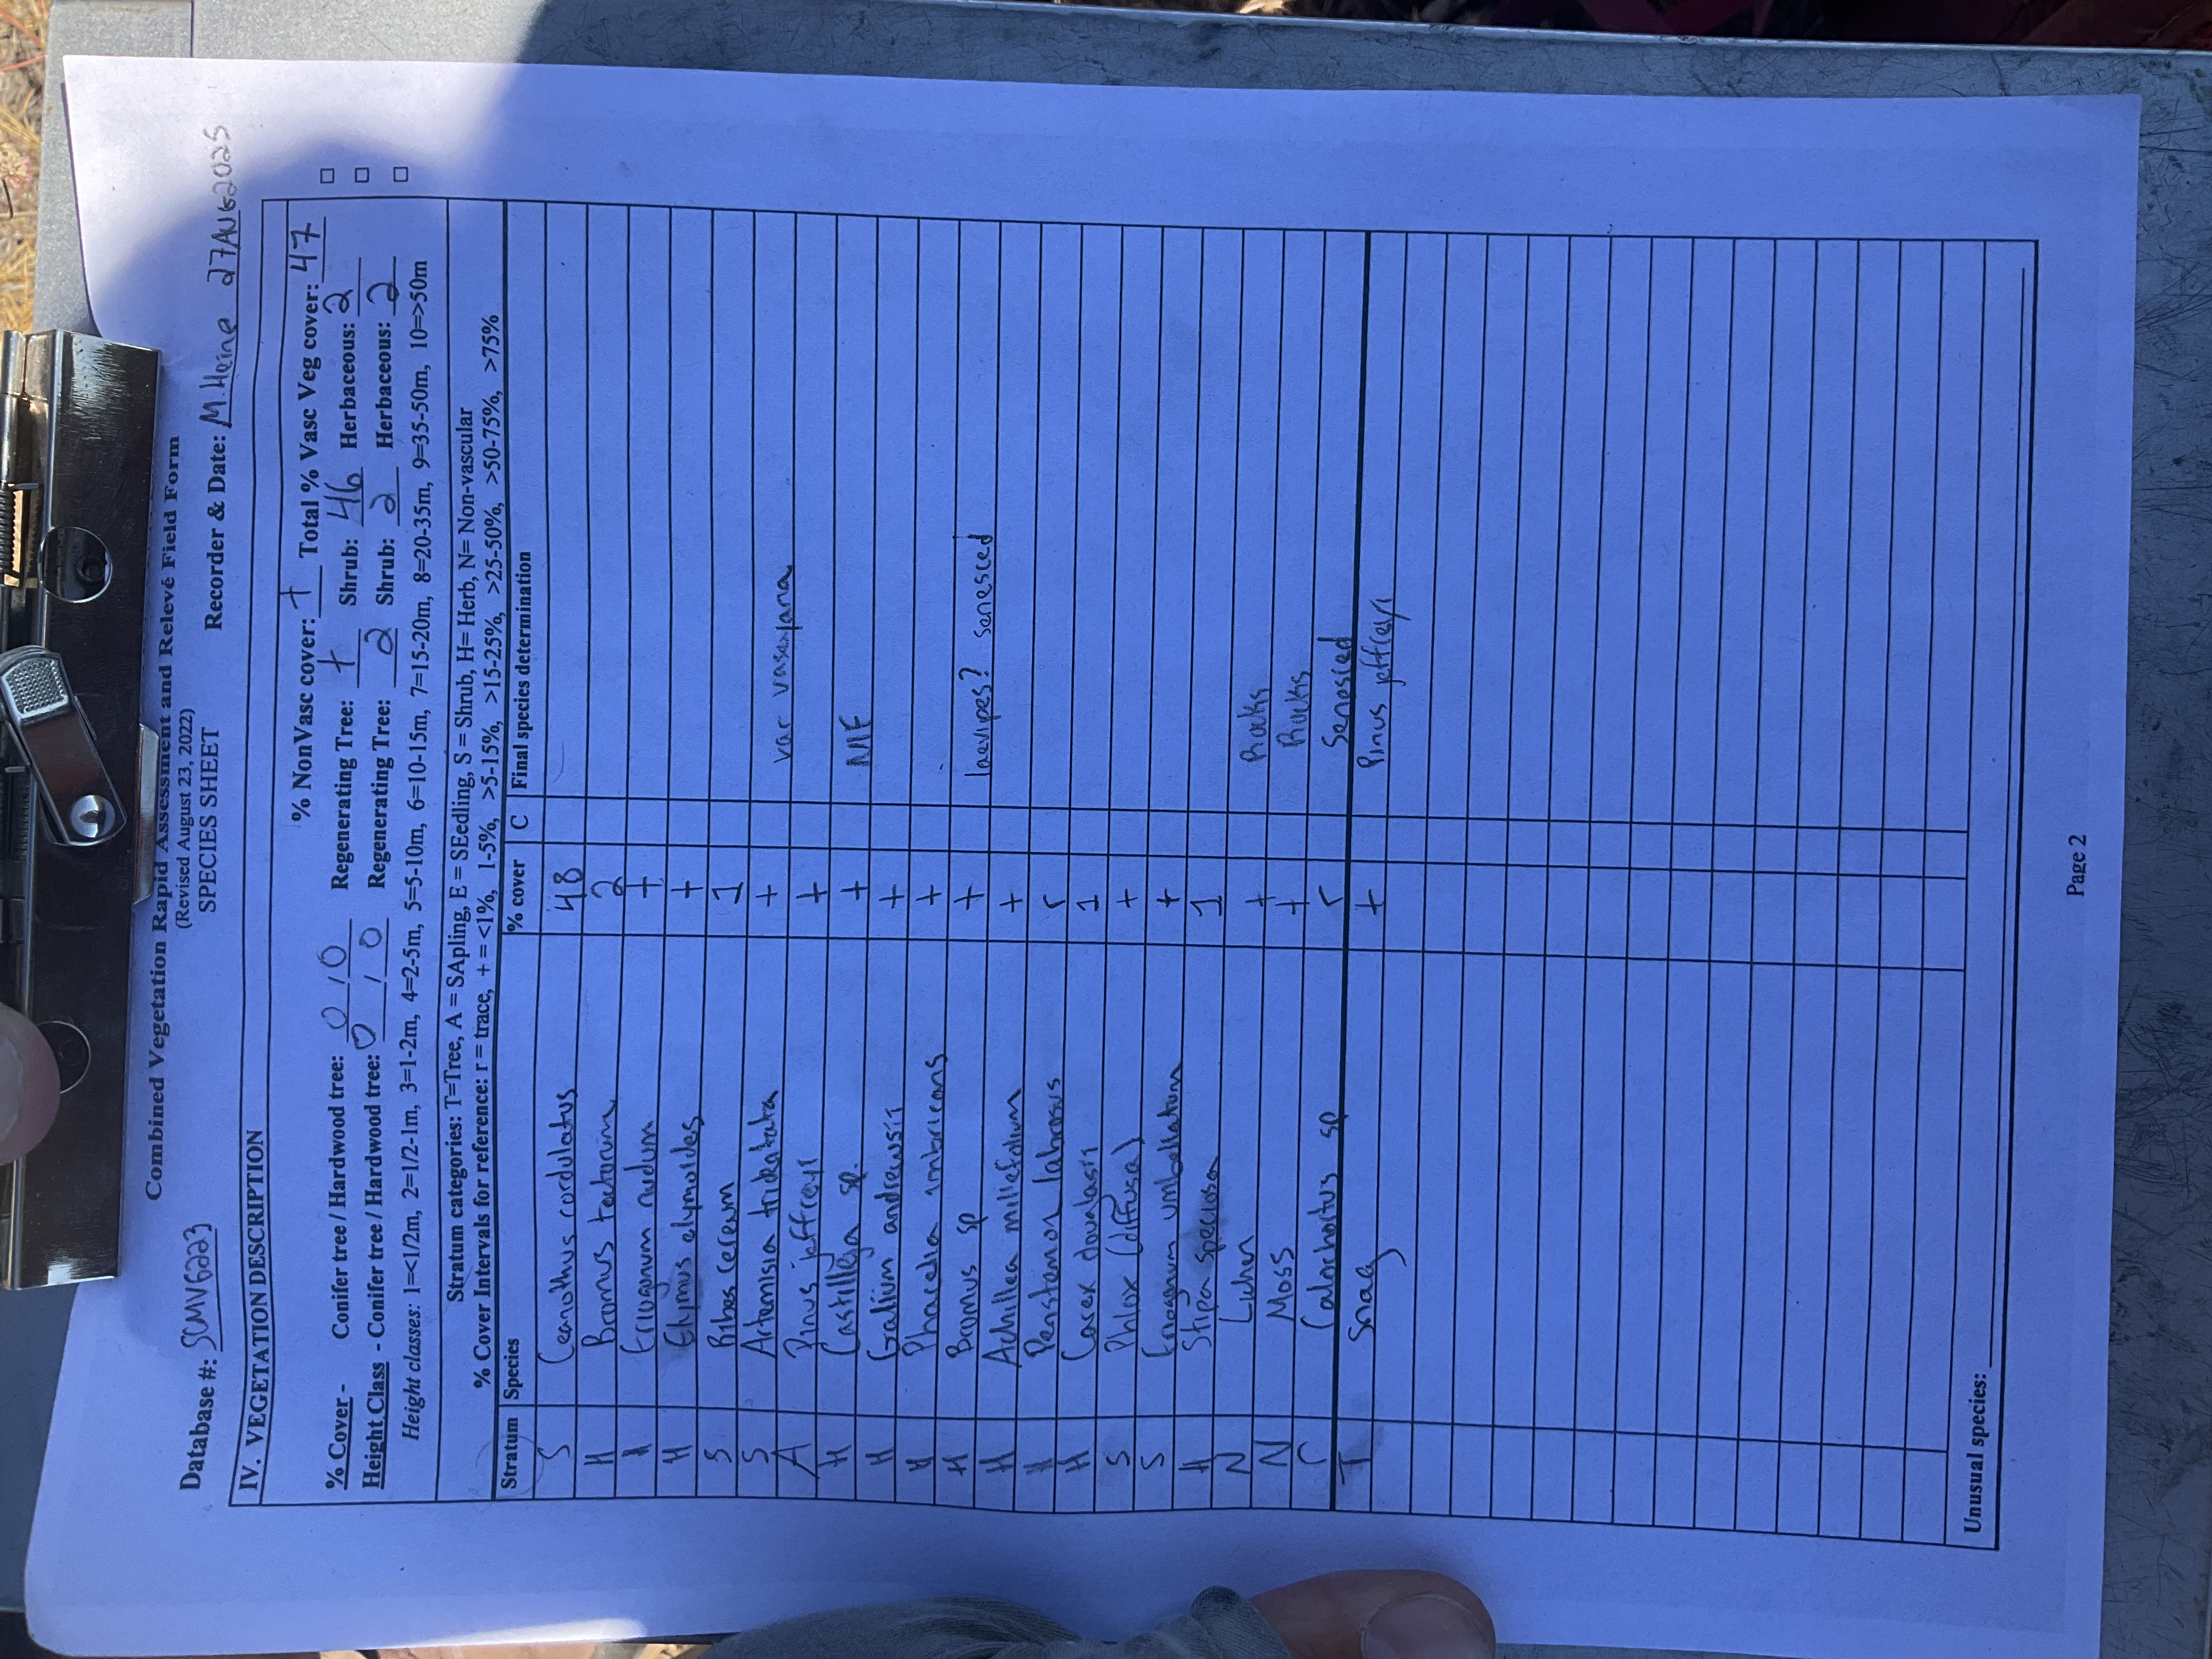 Combined Vegetation Rapid Assessment and Relevé Field Form
(Revised August 23, 2022)
SPECIES SHEET
Database #: SCMV6223 Recorder & Date: M. Heine 27AUG2025
IV. VEGETATION DESCRIPTION
% NonVasc cover: + Total % Vasc Veg cover: 47
% Cover - Conifer tree / Hardwood tree: 0 / 0 Regenerating Tree: + Shrub: 46 Herbaceous: 2
Height Class - Conifer tree / Hardwood tree: 0 / 0 Regenerating Tree: 2 Shrub: 2 Herbaceous: 2
Height classes: 1=<1/2m, 2=1/2-1m, 3=1-2m, 4=2-5m, 5=5-10m, 6=10-15m, 7=15-20m, 8=20-35m, 9=35-50m, 10=>50m
Stratum categories: T=Tree, A = SApling, E = SEedling, S = Shrub, H= Herb, N= Non-vascular
% Cover Intervals for reference: r = trace, + = <1%, 1-5%, >5-15%, >15-25%, >25-50%, >50-75%, >75%
Stratum Species % cover C Final species determination
S Ceanothus cordulatus 48
H Bromus tectorum 2
H Eriogonum nudum +
H Elymus elymoides +
S Ribes cereum 1
S Artemisia tridentata + var vaseyana
A Pinus jeffreyi +
H Castilleja sp. + NIF
H Galium andrewsii +
H Phacelia imbricans +
H Bromus sp + laevipes? senesced
H Achillea millefolium +
H Penstemon labrosus r
H Carex douglasii 1
S Phlox (diffusa) +
S Eriogonum umbellatum +
H Stipa speciosa 1
N Lichen + Rocks
N Moss + Rocks
C Calochortus sp r Senesced
T Snag + Pinus jeffreyi
Unusual species:
Page 2